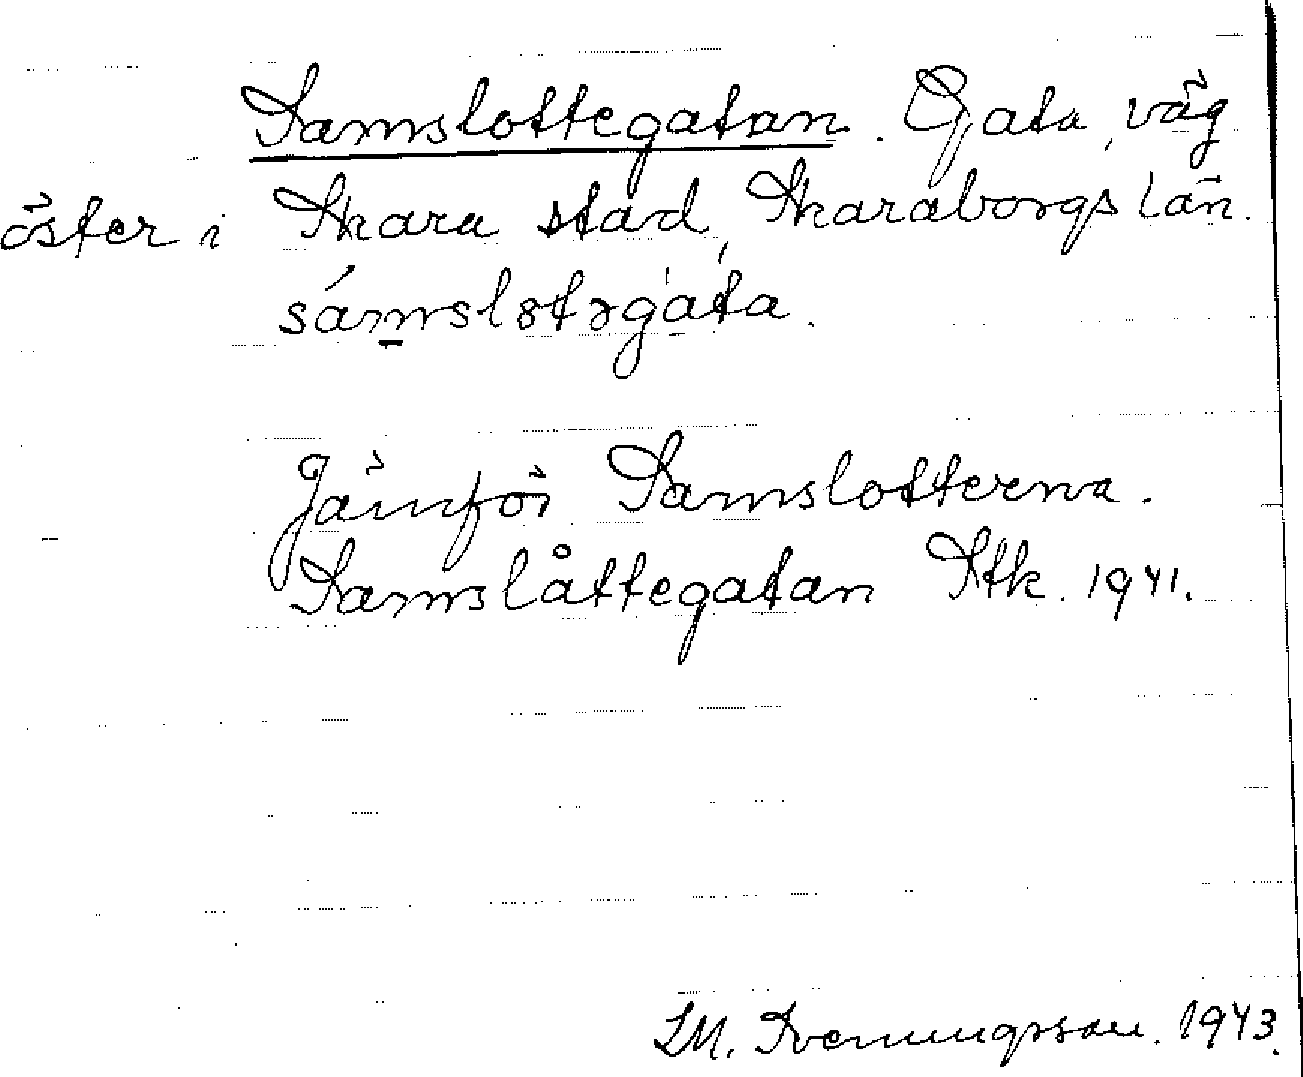 Samslottegatan. Gata, väg
öster i Skara stad, Skaraborgs län.
sámslotəgàta.
Jämför Samslotterna.
Samslåttegatan Stk. 1941.
SM. Svenungsson. 1943.